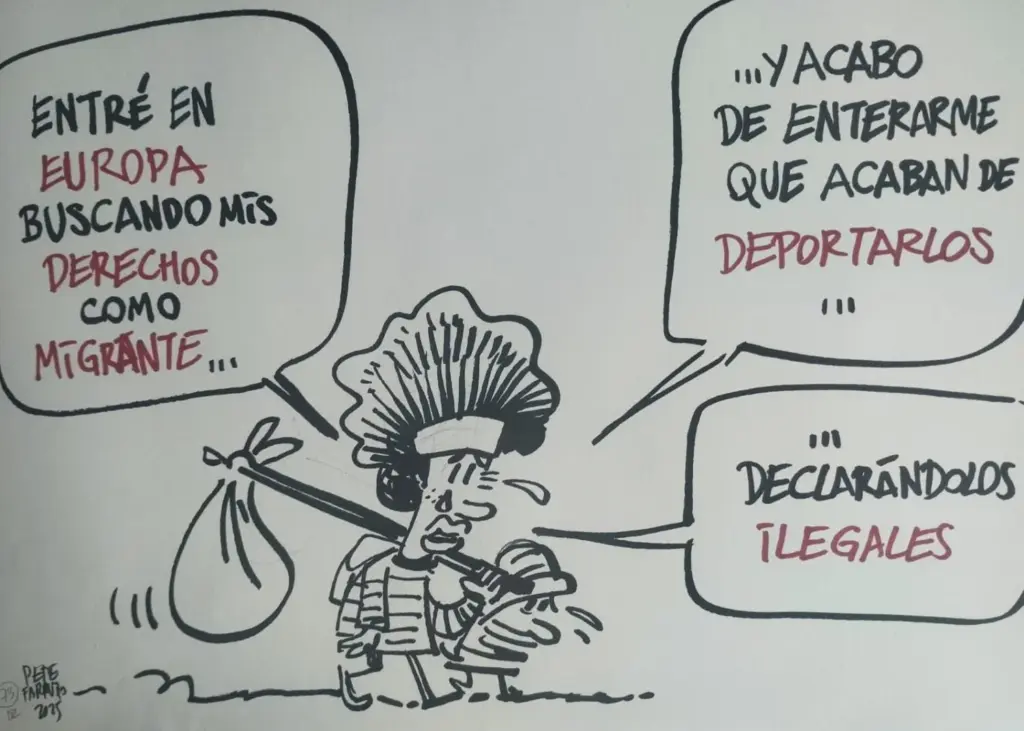 ENTRÉ EN
EUROPA
BUSCANDO MIS
DERECHOS
COMO
MIGRANTE...
...Y ACABO
DE ENTERARME
QUE ACABAN DE
DEPORTARLOS
...
...
DECLARÁNDOLOS
ILEGALES
PEPE
2025